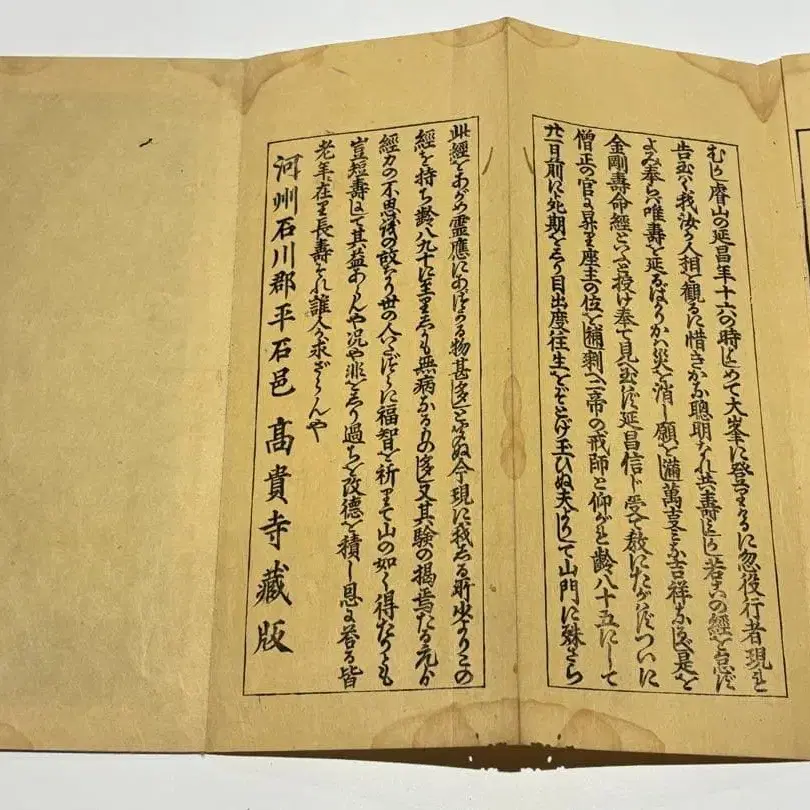 むかし睿山の延昌年十六の時はじめて大峯に登りけるに忽役行者現れ
告玉はく我汝が人相を観るに惜きかな聰明なれ共壽みじかし若この經を怠ず
よみ奉らば唯壽を延るばかりかは災を消し願を滿萬喜こと吉祥なるべし是を
金剛壽命經といふと授け奉て見玉はず延昌信じ受て教にたがはずついに
僧正の官に昇り座主の位を滿剰へ二帝の戒師と仰がれ齢八十五にして
廿日前に死期をしり目出度往生をぞとげ玉ひぬ夫よりして山門に殊さら
此經をあがめ靈應にあづかる物甚多しとなぬ今現に我しる所少よりこの
經を持ち齢八九十に至りしかも無病なるもの多し又其驗の揭焉たる元より
經力の不思議の故なり世の人いたづらに福智を祈りて山の如く得たりとも
豈短壽にして其益あらんや况や非をしり過ちを改德を積し恩に答る皆
老年に在り長壽それ誰人か求ざらんや
河州石川郡平石邑 髙貴寺藏版